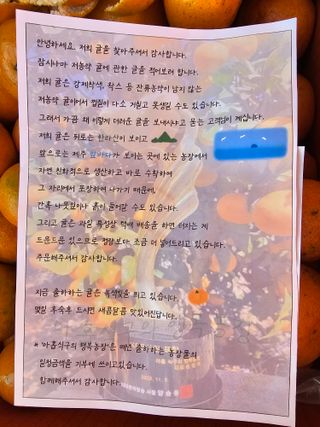 안녕하세요. 저희 귤을 찾아주셔서 감사합니다.
잠시나마 저농약 귤에 관한 글을 적어보려 합니다.
저희 귤은 강제착색, 왁스 등 잔류농약이 남지 않는
저농약 귤이어서 껍질이 다소 거칠고 못생길 수도 있습니다.
그래서 가끔 왜 이렇게 더러운 귤을 보내시냐고 묻는 고객님이 계십니다.
저희 귤은 뒤로는 한라산이 보이고
앞으로는 제주 앞바다가 보이는 곳에 있는 농장에서
자연 친화적으로 생산하고 바로 수확하여
그 자리에서 포장하여 나가기 때문에,
간혹 나뭇잎이나 흙이 묻어갈 수도 있습니다.
그리고 귤은 과일 특성상 택배 배송을 하면 터지는 게
드문드문 있으므로 정량보다 조금 더 넣어드리고 있습니다.
주문해주셔서 감사합니다.
지금 출하하는 귤은 녹색빛을 띄고 있습니다.
몇일 후숙후 드시면 새콤달콤 맛있어진답니다.
* "아홉식구의 행복농장"은 매년 출하하는 농산물의
일정금액을 기부에 쓰이고있습니다.
함께해주셔서 감사합니다.